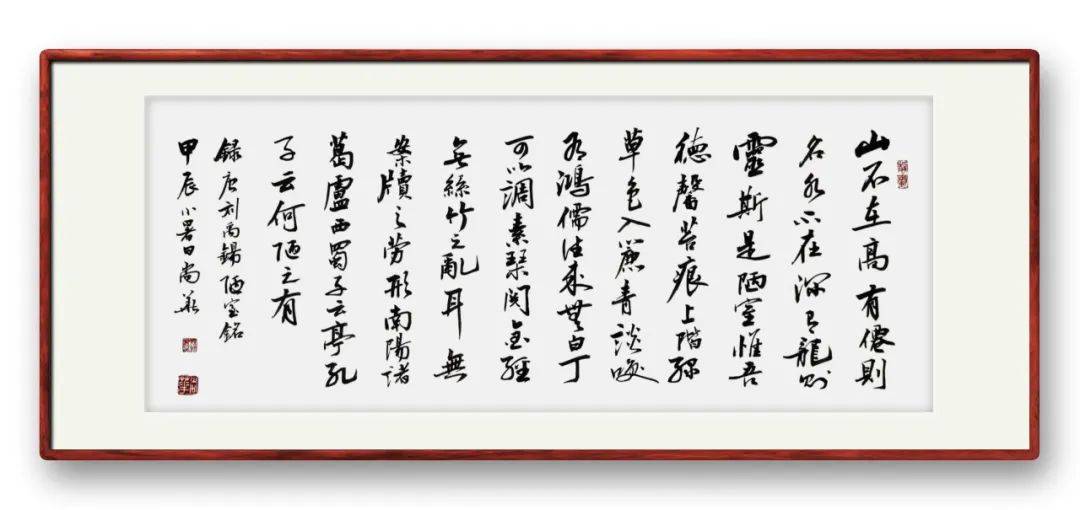 山不在高有僊則
名水不在深有龍則
靈斯是陋室惟吾
德馨苔痕上階綠
草色入簾青談咲
有鴻儒往來無白丁
可以調素琴閱金經
無絲竹之亂耳無
案牘之勞形南陽諸
葛盧西蜀子云亭孔
子云何陋之有
録唐刘禹錫陋室銘
甲辰小暑田尚